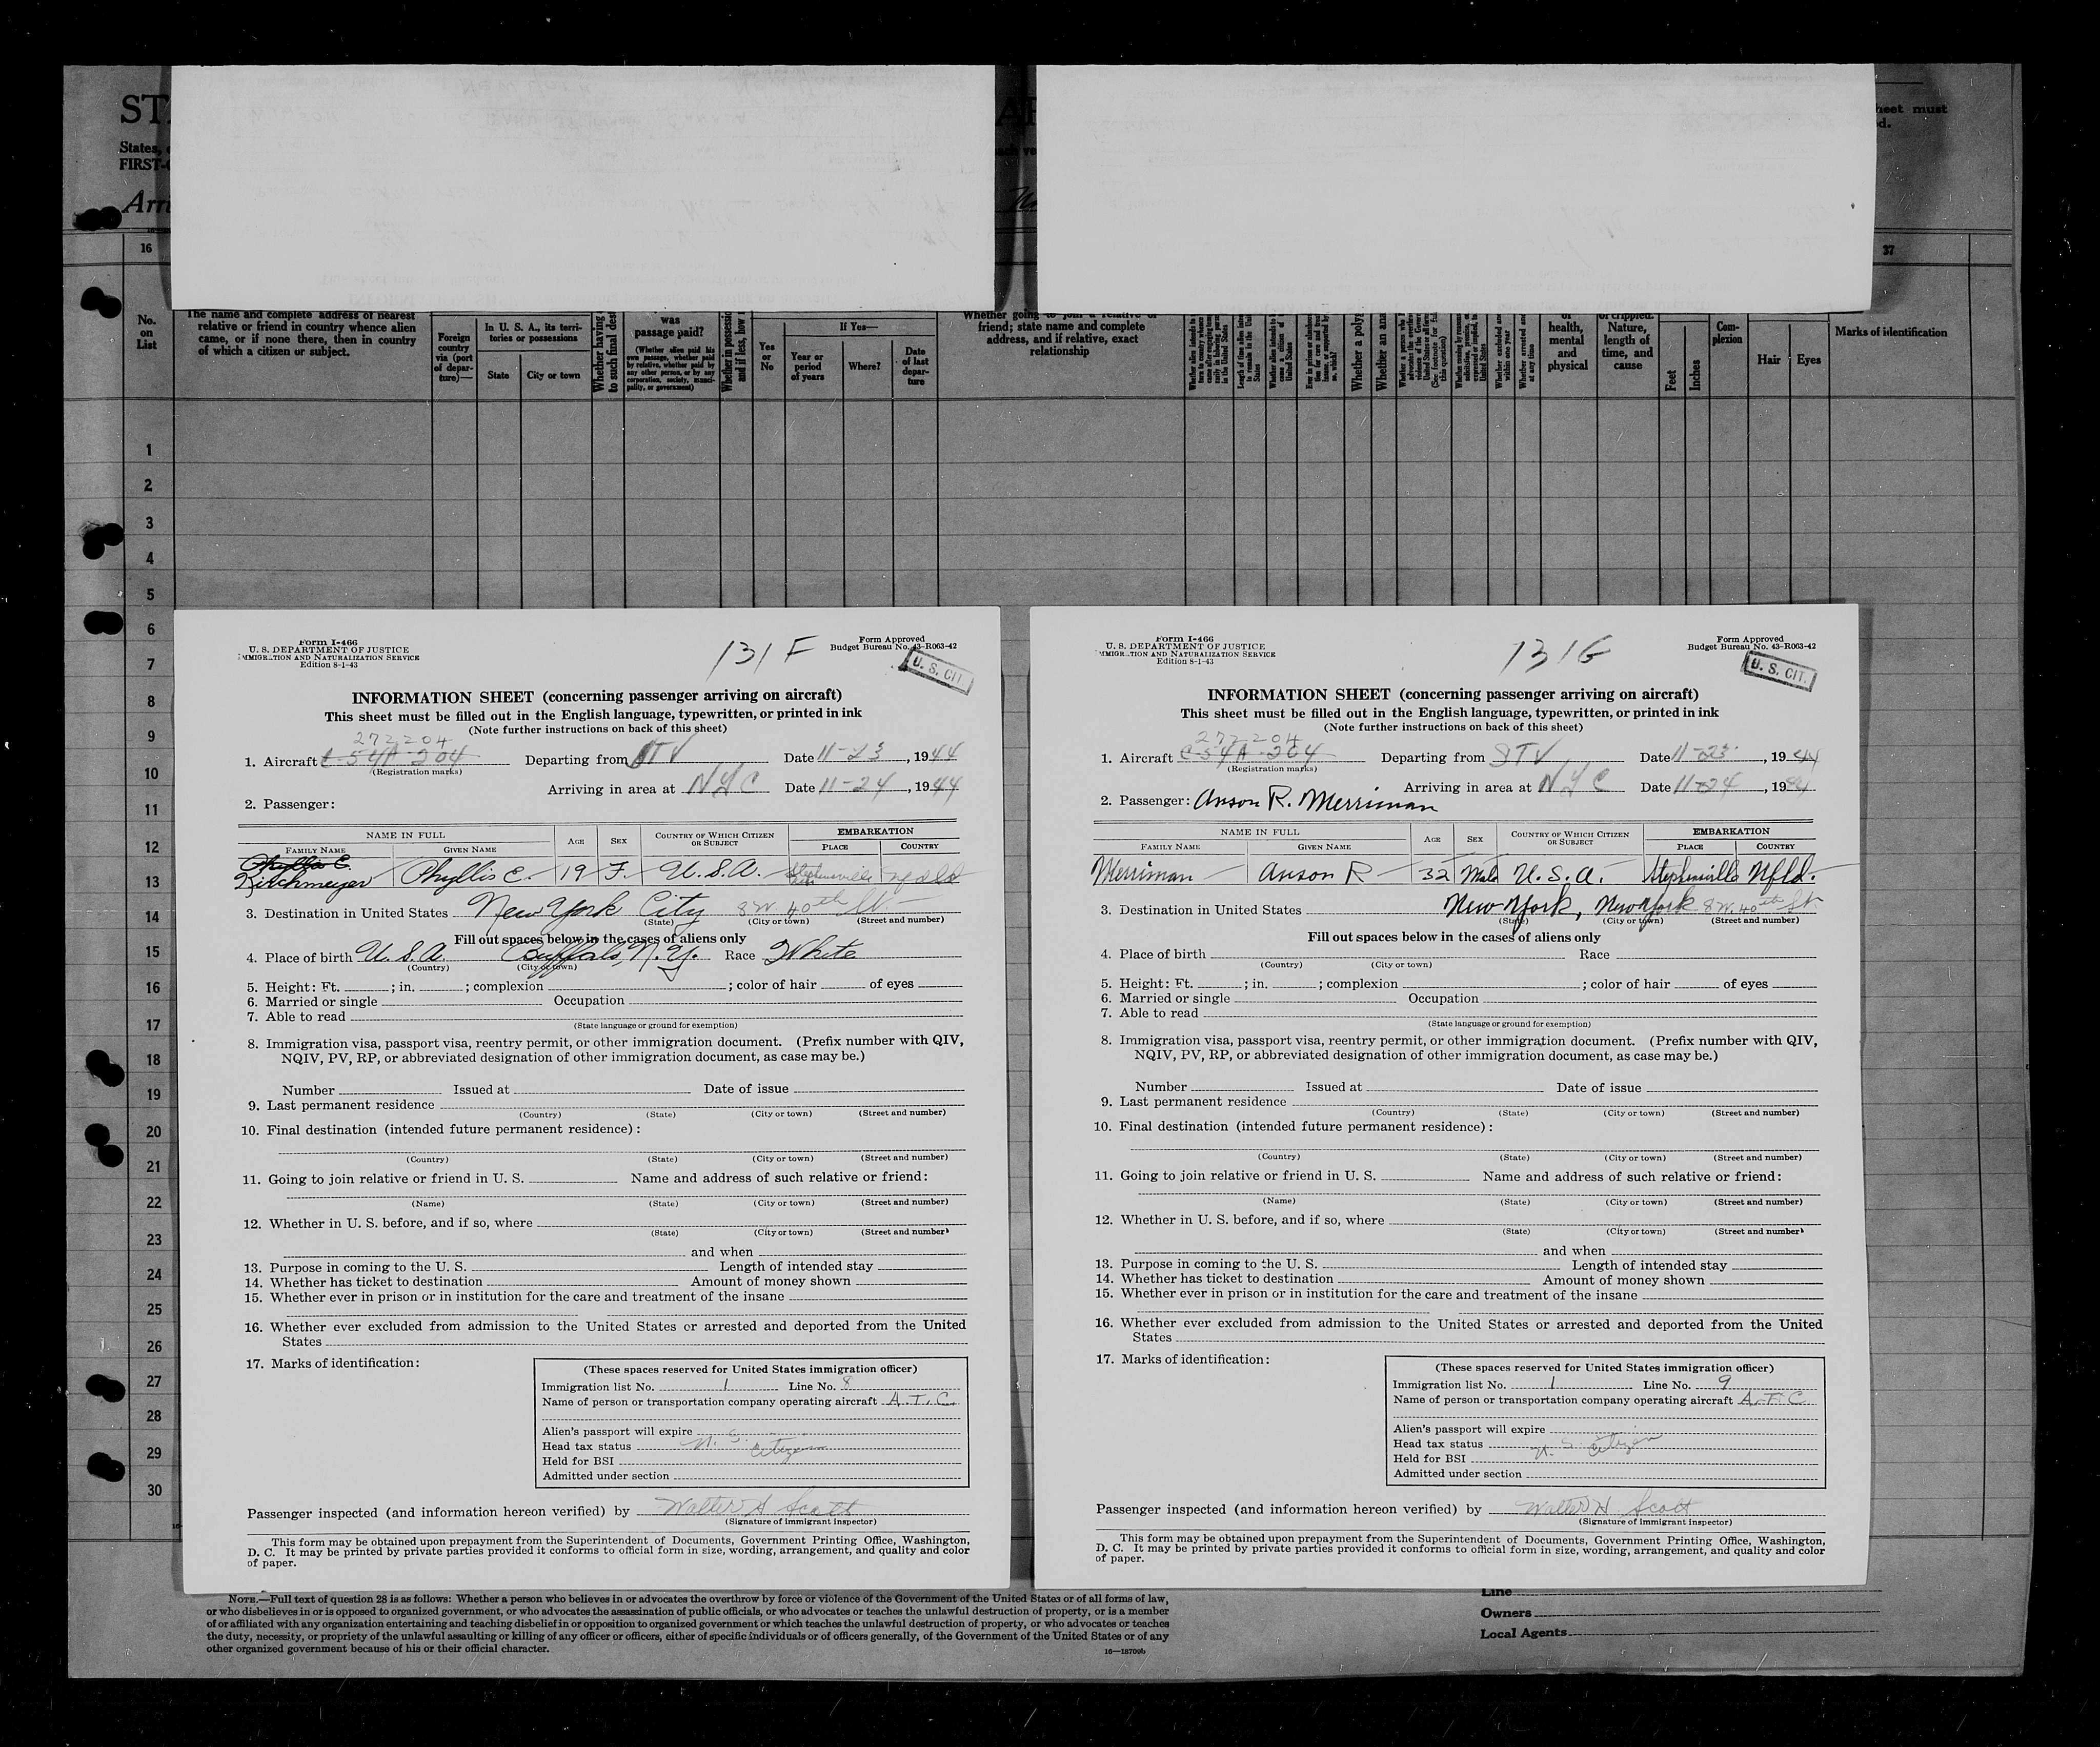 States,
FIRST-
Arri
heet must
d.
16
37
No. on List
The name and complete address of nearest relative or friend in country whence alien came, or if none there, then in country of which a citizen or subject.
Foreign country via (port of departure)—
In U. S. A., its territories or possessions
State
City or town
Whether having
to such final des
was passage paid?
(Whether alien paid his own passage, whether paid by relative, whether paid by any other person, or by any corporation, society, municipality, or government)
Whether in possessio
and if less, how
Yes or No
If Yes—
Year or period of years
Where?
Date of last departure
Whether going to join a relative or friend; state name and complete address, and if relative, exact relationship
Whether a poly
Whether an ana
health, mental and physical
or crippled. Nature, length of time, and cause
Feet
Inches
Complexion
Hair
Eyes
Marks of identification
1
2
3
4
5
6
7
8
9
10
11
12
13
14
15
16
17
18
19
20
21
22
23
24
25
26
27
28
29
30
Form I-466
U. S. DEPARTMENT OF JUSTICE
IMMIGRATION AND NATURALIZATION SERVICE
Edition 8-1-43
131 F
Form Approved
Budget Bureau No. 43-R063-42
U. S. CIT.
INFORMATION SHEET (concerning passenger arriving on aircraft)
This sheet must be filled out in the English language, typewritten, or printed in ink
(Note further instructions on back of this sheet)
272204
1. Aircraft C-54A-204 Departing from STV Date 11-23, 1944
(Registration marks)
Arriving in area at NYC Date 11-24, 1944
2. Passenger:
NAME IN FULL AGE SEX COUNTRY OF WHICH CITIZEN OR SUBJECT EMBARKATION
FAMILY NAME GIVEN NAME PLACE COUNTRY
Phyllis E.
Kirchmeyer Phyllis E. 19 F. U.S.A. Stephenville Nfld
3. Destination in United States New York City 8 W. 40th St.
(State) (City or town) (Street and number)
Fill out spaces below in the cases of aliens only
4. Place of birth U.S.A. Buffalo, N.Y. Race White
(Country) (City or town)
5. Height: Ft. ; in. ; complexion ; color of hair of eyes
6. Married or single Occupation
7. Able to read
(State language or ground for exemption)
8. Immigration visa, passport visa, reentry permit, or other immigration document. (Prefix number with QIV,
NQIV, PV, RP, or abbreviated designation of other immigration document, as case may be.)
Number Issued at Date of issue
9. Last permanent residence
(Country) (State) (City or town) (Street and number)
10. Final destination (intended future permanent residence):
(Country) (State) (City or town) (Street and number)
11. Going to join relative or friend in U. S. Name and address of such relative or friend:
(Name) (State) (City or town) (Street and number)
12. Whether in U. S. before, and if so, where
(State) (City or town) (Street and number)
and when
13. Purpose in coming to the U. S. Length of intended stay
14. Whether has ticket to destination Amount of money shown
15. Whether ever in prison or in institution for the care and treatment of the insane
16. Whether ever excluded from admission to the United States or arrested and deported from the United
States
17. Marks of identification:
(These spaces reserved for United States immigration officer)
Immigration list No. 1 Line No. 8
Name of person or transportation company operating aircraft A.T.C.
Alien's passport will expire
Head tax status U. S. Citizen
Held for BSI
Admitted under section
Passenger inspected (and information hereon verified) by Walter H Scott
(Signature of immigrant inspector)
This form may be obtained upon prepayment from the Superintendent of Documents, Government Printing Office, Washington,
D. C. It may be printed by private parties provided it conforms to official form in size, wording, arrangement, and quality and color
of paper.
Form I-466
U. S. DEPARTMENT OF JUSTICE
IMMIGRATION AND NATURALIZATION SERVICE
Edition 8-1-43
131 G
Form Approved
Budget Bureau No. 43-R063-42
U. S. CIT.
INFORMATION SHEET (concerning passenger arriving on aircraft)
This sheet must be filled out in the English language, typewritten, or printed in ink
(Note further instructions on back of this sheet)
272204
1. Aircraft C-54A-204 Departing from STV Date 11-23, 1944
(Registration marks)
Arriving in area at NYC Date 11-24, 1944
2. Passenger: Anson R. Merriman
NAME IN FULL AGE SEX COUNTRY OF WHICH CITIZEN OR SUBJECT EMBARKATION
FAMILY NAME GIVEN NAME PLACE COUNTRY
Merriman Anson R 32 Male U.S.A. Stephenville Nfld.
3. Destination in United States New York, New York 8 W. 40th St
(State) (City or town) (Street and number)
Fill out spaces below in the cases of aliens only
4. Place of birth Race
(Country) (City or town)
5. Height: Ft. ; in. ; complexion ; color of hair of eyes
6. Married or single Occupation
7. Able to read
(State language or ground for exemption)
8. Immigration visa, passport visa, reentry permit, or other immigration document. (Prefix number with QIV,
NQIV, PV, RP, or abbreviated designation of other immigration document, as case may be.)
Number Issued at Date of issue
9. Last permanent residence
(Country) (State) (City or town) (Street and number)
10. Final destination (intended future permanent residence):
(Country) (State) (City or town) (Street and number)
11. Going to join relative or friend in U. S. Name and address of such relative or friend:
(Name) (State) (City or town) (Street and number)
12. Whether in U. S. before, and if so, where
(State) (City or town) (Street and number)
and when
13. Purpose in coming to the U. S. Length of intended stay
14. Whether has ticket to destination Amount of money shown
15. Whether ever in prison or in institution for the care and treatment of the insane
16. Whether ever excluded from admission to the United States or arrested and deported from the United
States
17. Marks of identification:
(These spaces reserved for United States immigration officer)
Immigration list No. 1 Line No. 9
Name of person or transportation company operating aircraft A.T.C.
Alien's passport will expire
Head tax status U. S. Citizen
Held for BSI
Admitted under section
Passenger inspected (and information hereon verified) by Walter H Scott
(Signature of immigrant inspector)
This form may be obtained upon prepayment from the Superintendent of Documents, Government Printing Office, Washington,
D. C. It may be printed by private parties provided it conforms to official form in size, wording, arrangement, and quality and color
of paper.
NOTE.—Full text of question 28 is as follows: Whether a person who believes in or advocates the overthrow by force or violence of the Government of the United States or of all forms of law,
or who disbelieves in or is opposed to organized government, or who advocates the assassination of public officials, or who advocates or teaches the unlawful destruction of property, or is a member
of or affiliated with any organization entertaining and teaching disbelief in or opposition to organized government or which teaches the unlawful destruction of property, or who advocates or teaches
the duty, necessity, or propriety of the unlawful assaulting or killing of any officer or officers, either of specific individuals or of officers generally, of the Government of the United States or of any
other organized government because of his or their official character.
16—18709b
Line
Owners
Local Agents